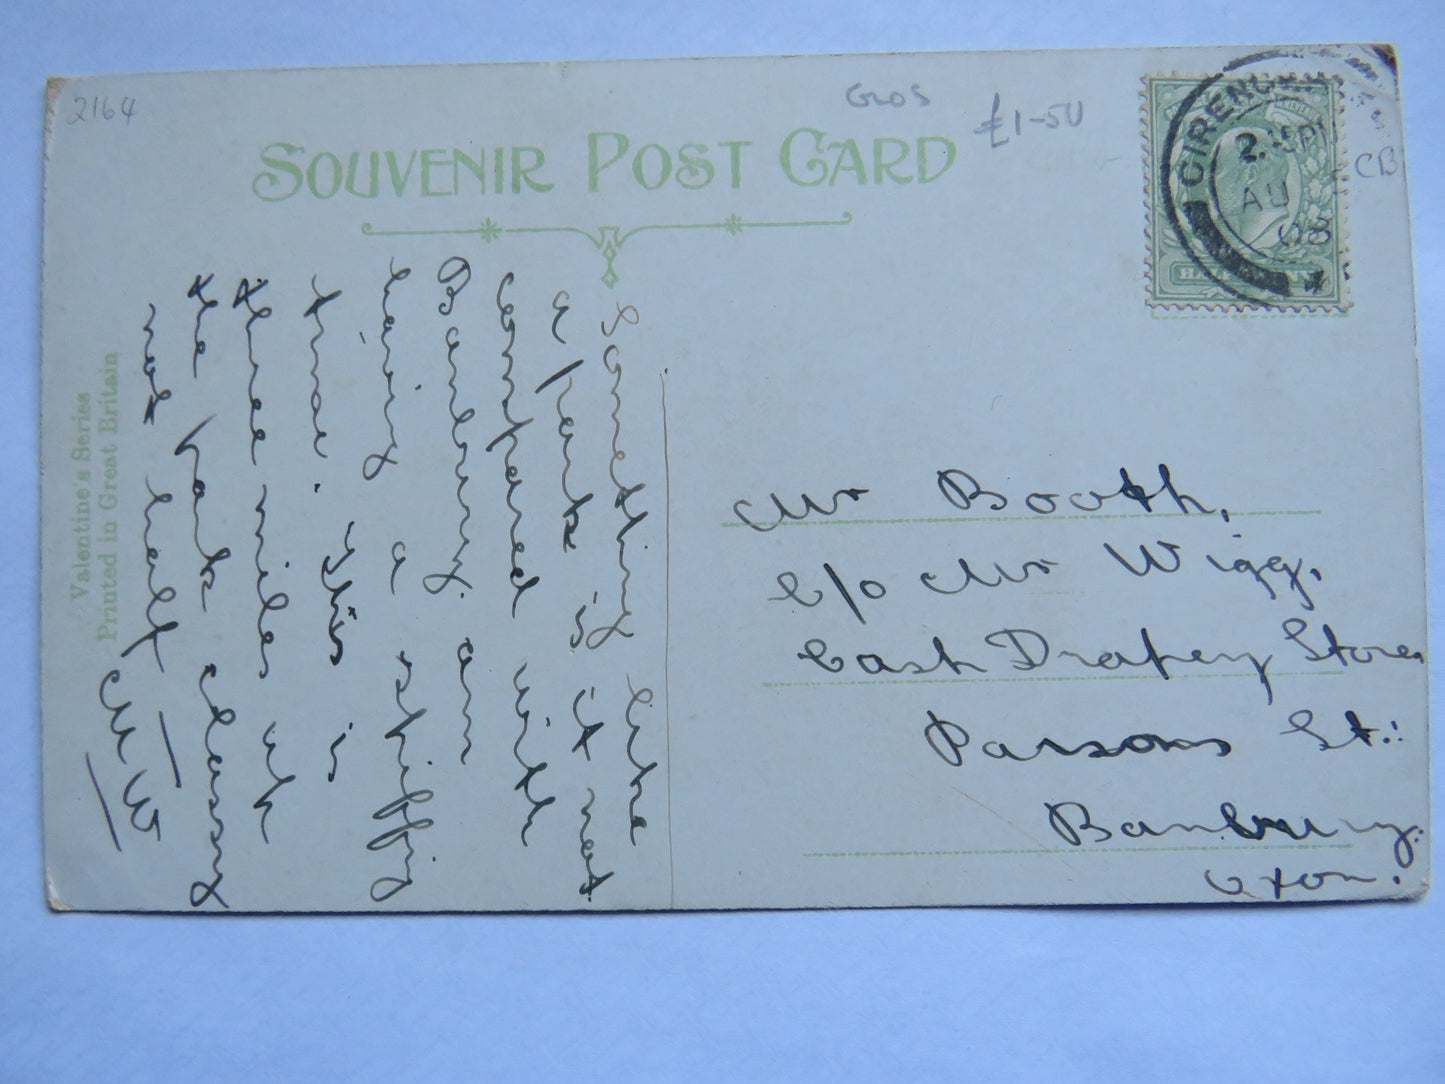 2164
GLOS
£1-50
CB
SOUVENIR POST CARD
CIRENC
2.15PM
AU
08
HA
Valentine's Series
Printed in Great Britain
Something like
a park is it not
compared with
Banbury. am
having a spiffing
time. This is
three miles up
the park classy
not half
M W
Mr Booth,
c/o Mr Wigg,
Cash Drapery Stores
Parsons St.
Banbury.
Oxon.